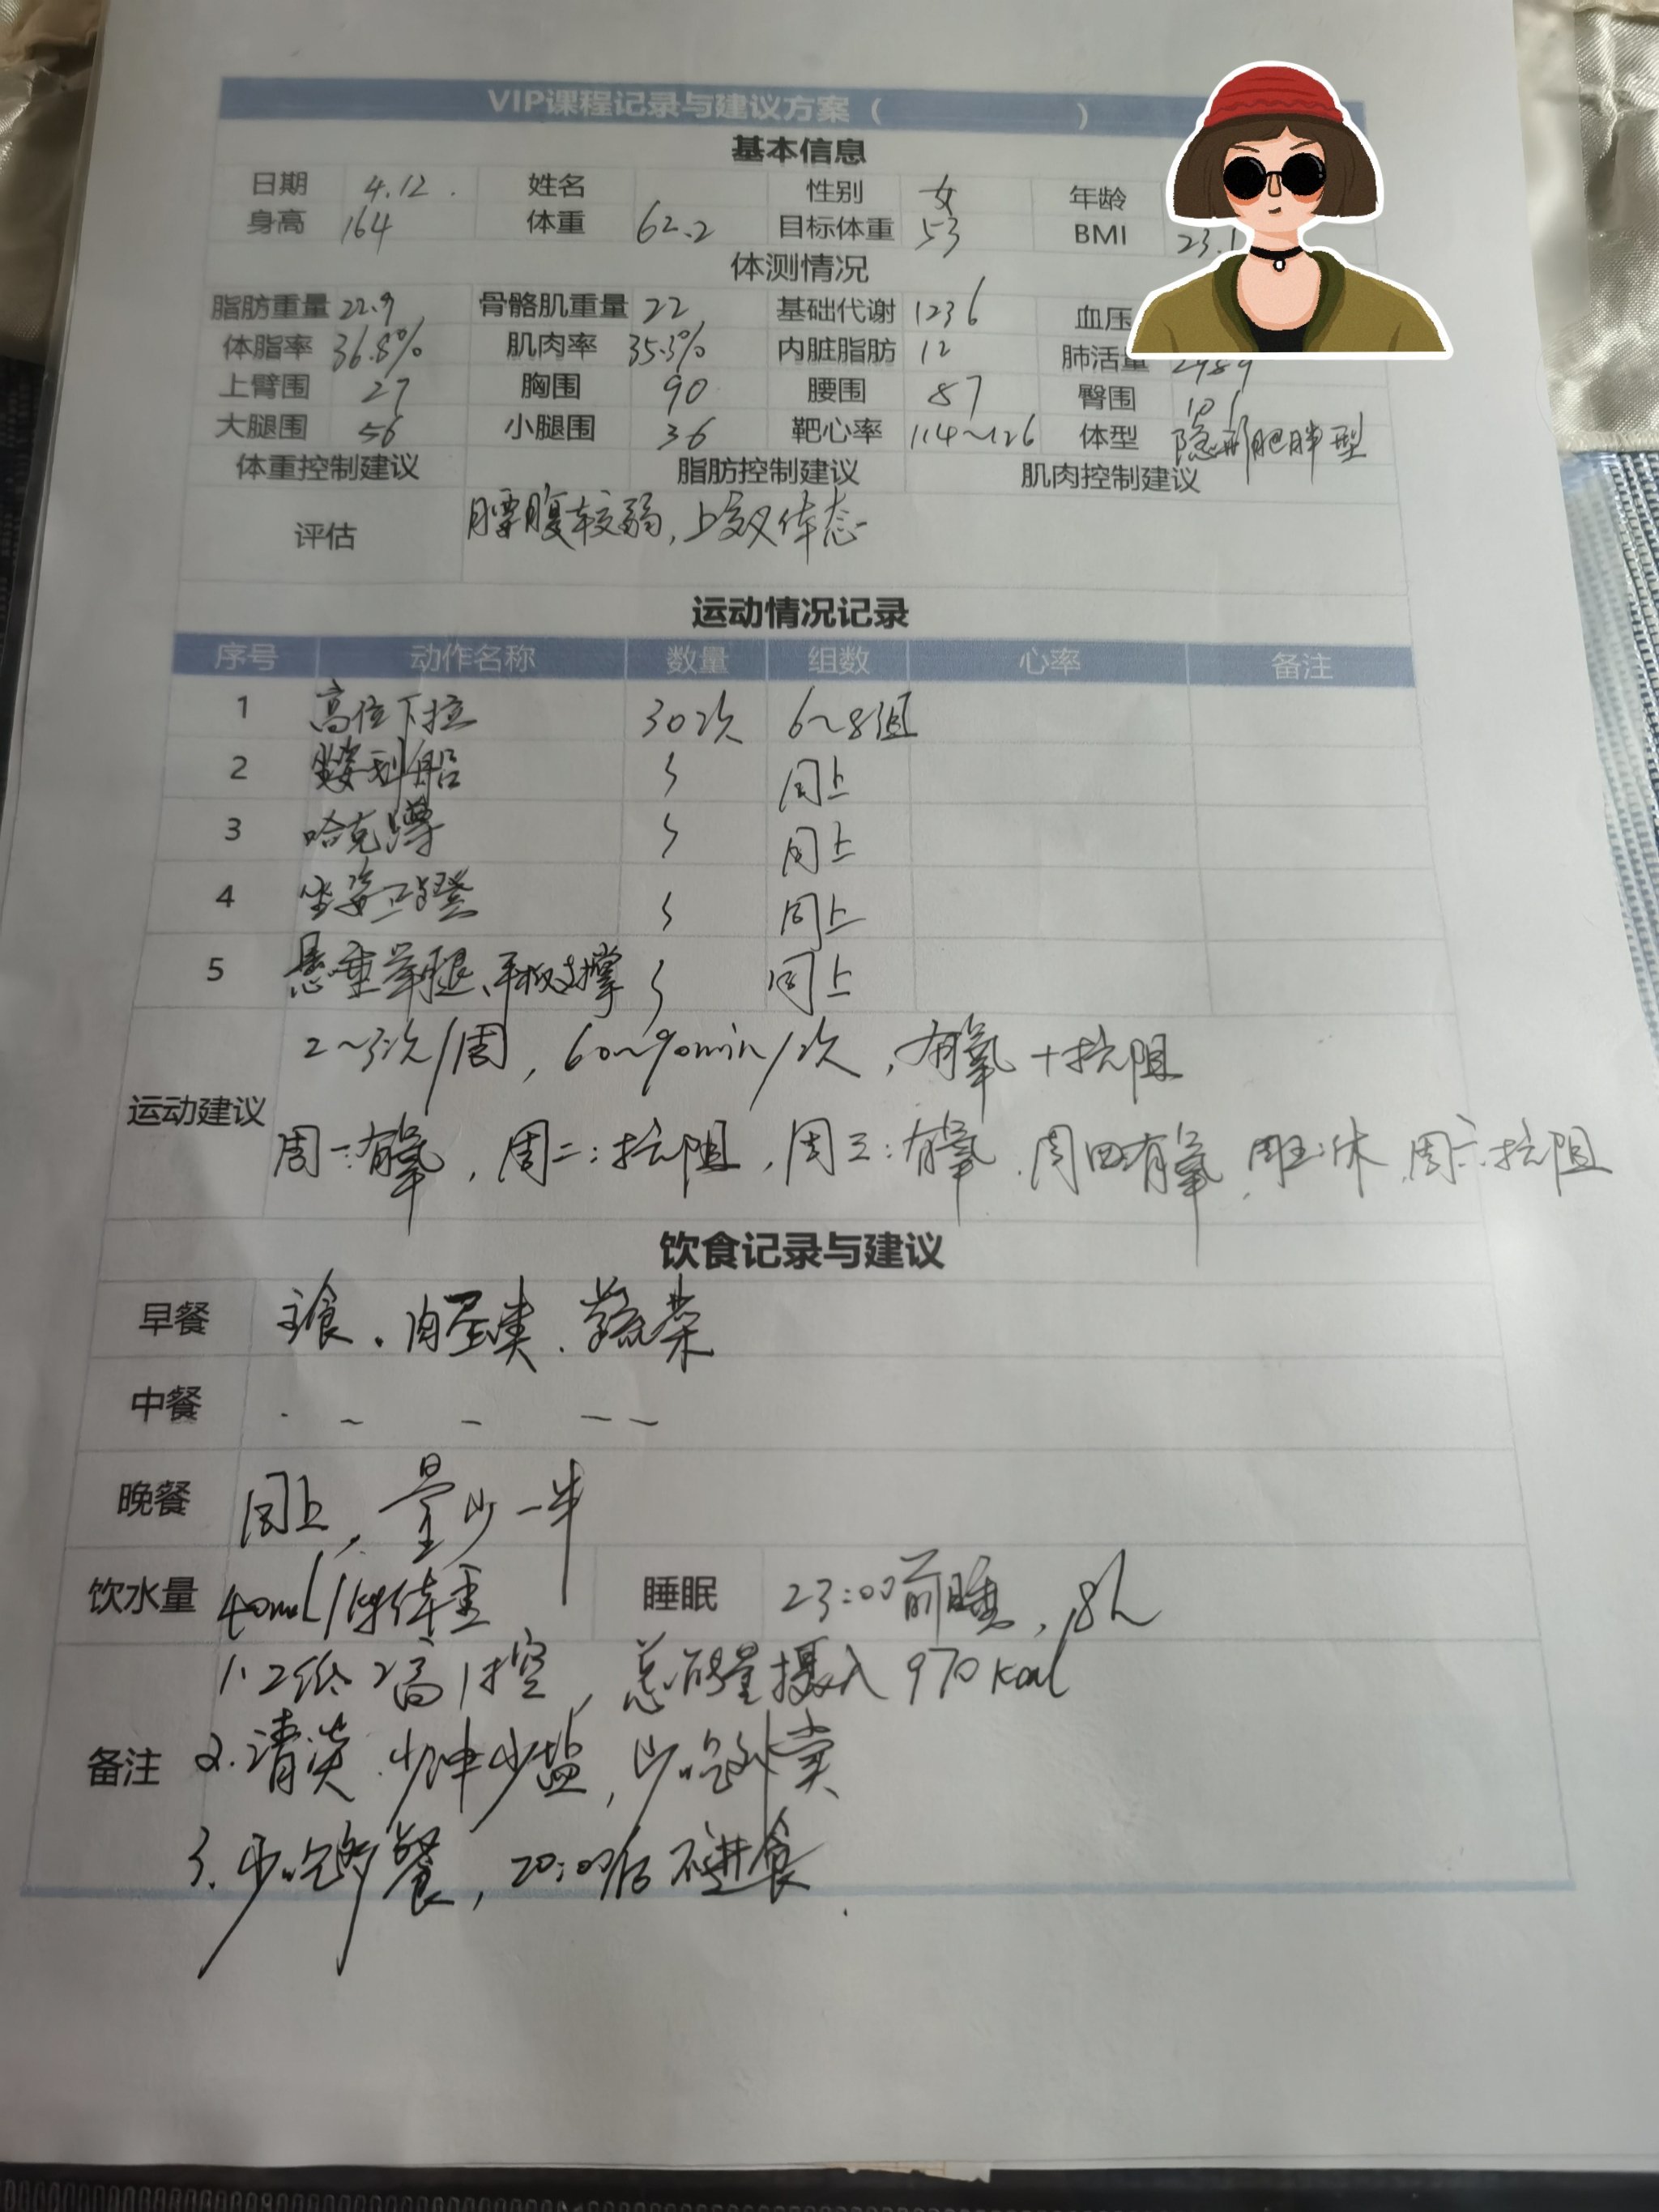 VIP课程记录与建议方案（ ）
基本信息
日期 4.12. 姓名 性别 女 年龄
身高 164 体重 62.2 目标体重 53 BMI 23.1
体测情况
脂肪重量 22.9 骨骼肌重量 22 基础代谢 1236 血压
体脂率 36.8% 肌肉率 35.3% 内脏脂肪 12 肺活量
上臂围 27 胸围 90 腰围 87 臀围 101
大腿围 56 小腿围 36 靶心率 114~126 体型 隐形肥胖型
体重控制建议 脂肪控制建议 肌肉控制建议
评估 腰腹较弱，上交叉体态
运动情况记录
序号 动作名称 数量 组数 心率 备注
1 高位下拉 30次 6~8组
2 坐姿划船 同上
3 哈克蹲 同上
4 坐姿蹬 同上
5 悬垂举腿、平板支撑 同上
2~3次/周，60~90min/次，有氧+抗阻
运动建议
周一：有氧，周二：抗阻，周三：有氧，周四有氧，周五：休，周六：抗阻
饮食记录与建议
早餐 主食、肉蛋类、蔬菜
中餐
晚餐 同上，量少一半
饮水量 40ml/kg体重 睡眠 23:00前睡，8h
1.2低2高1控，总能量摄入970kcal
备注 2.清淡.少油少盐，少吃外卖
3.少吃多餐，20:00后不进食.